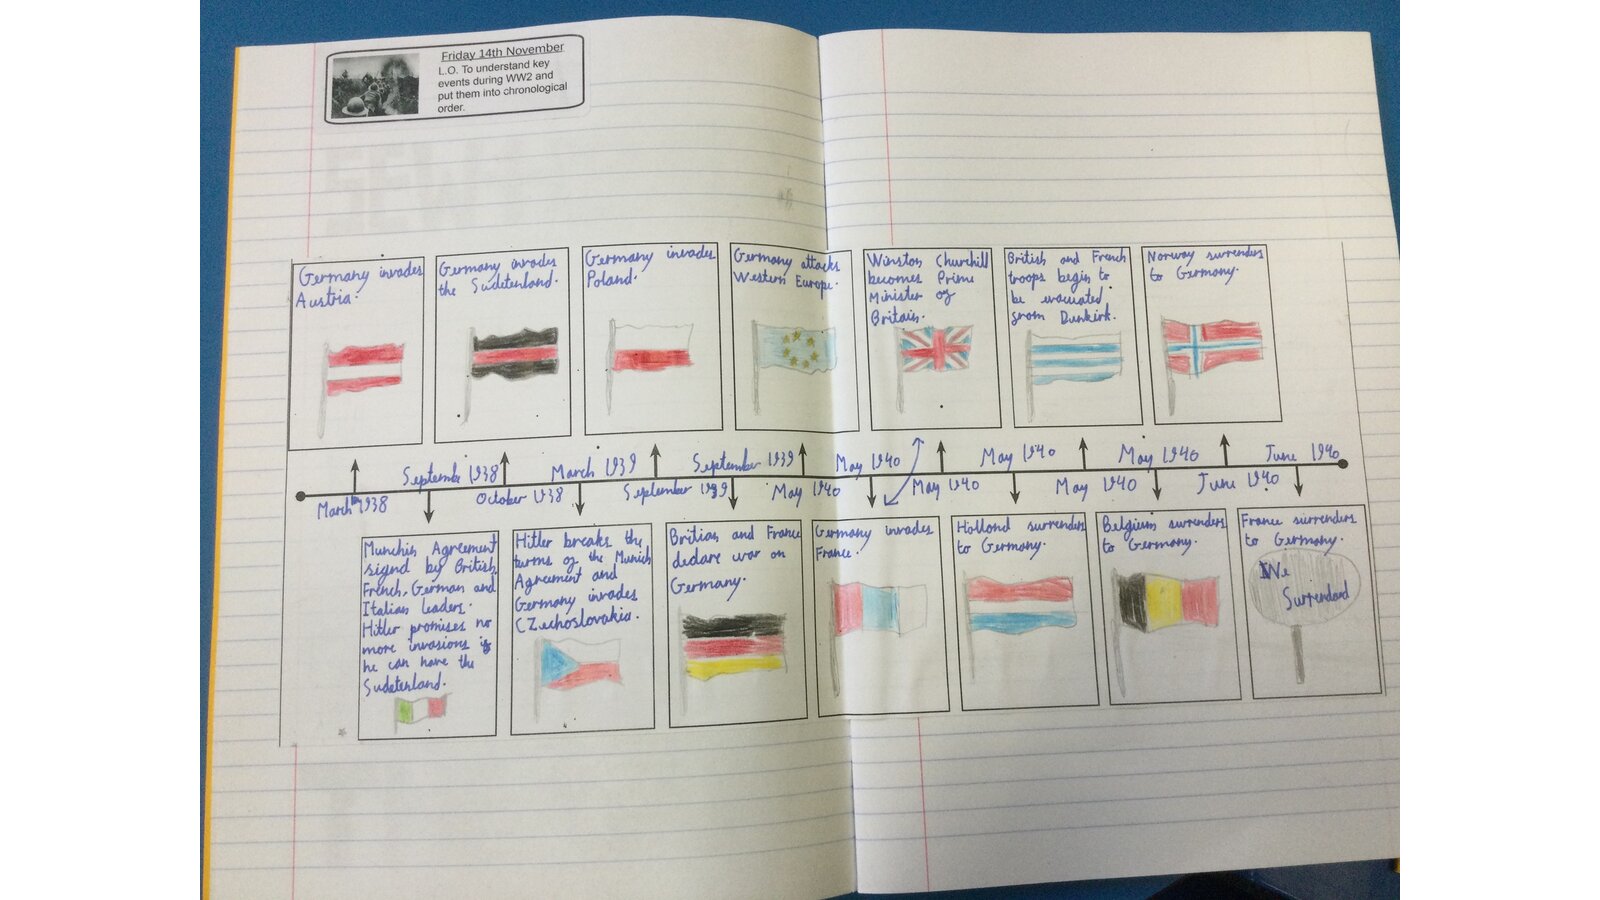 Friday 14th November
L.O. To understand key
events during WW2 and
put them into chronological
order.
Germany invades
Austria.
Germany invades
the Sudetenland.
Germany invades
Poland.
Germany attacks
Western Europe.
Winston Churchill
becomes Prime
Minister of
Britain.
British and French
troops begin to
be evacuated
from Dunkirk.
Norway surrenders
to Germany.
March 1938
September 1938
October 1938
March 1939
September 1939
September 1939
May 1940
May 1940
May 1940
May 1940
May 1940
May 1940
June 1940
June 1940
Munchin Agreement
signed by British,
French, German and
Italian leaders.
Hitler promises no
more invasions if
he can have the
Sudetenland.
Hitler breaks the
turms of the Munich
Agreement and
Germany invades
CZechoslovakia.
Britian and France
declare war on
Germany.
Germany invades
France.
Holland surrenders
to Germany.
Belgium surrenders
to Germany.
France surrenders
to Germany.
We
Surrendard